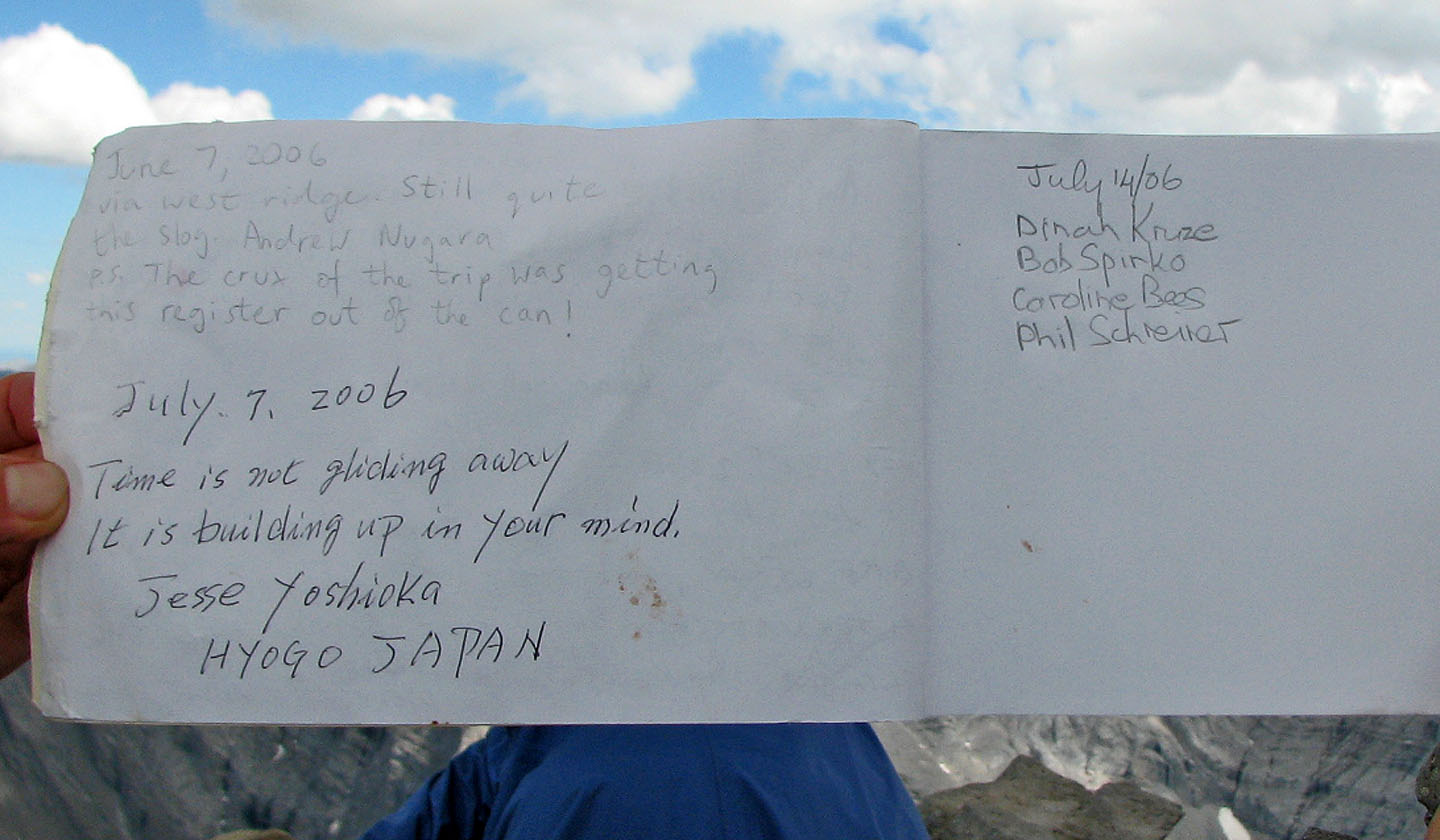 June 7, 2006
via west ridge. Still quite
the slog. Andrew Nugara
P.S. The crux of the trip was getting
this register out of the can!
July. 7. 2006
Time is not gliding away
It is building up in your mind.
Jesse Yoshioka
HYOGO JAPAN
July 14/06
Dinah Kruze
Bob Spirko
Caroline Bees
Phil